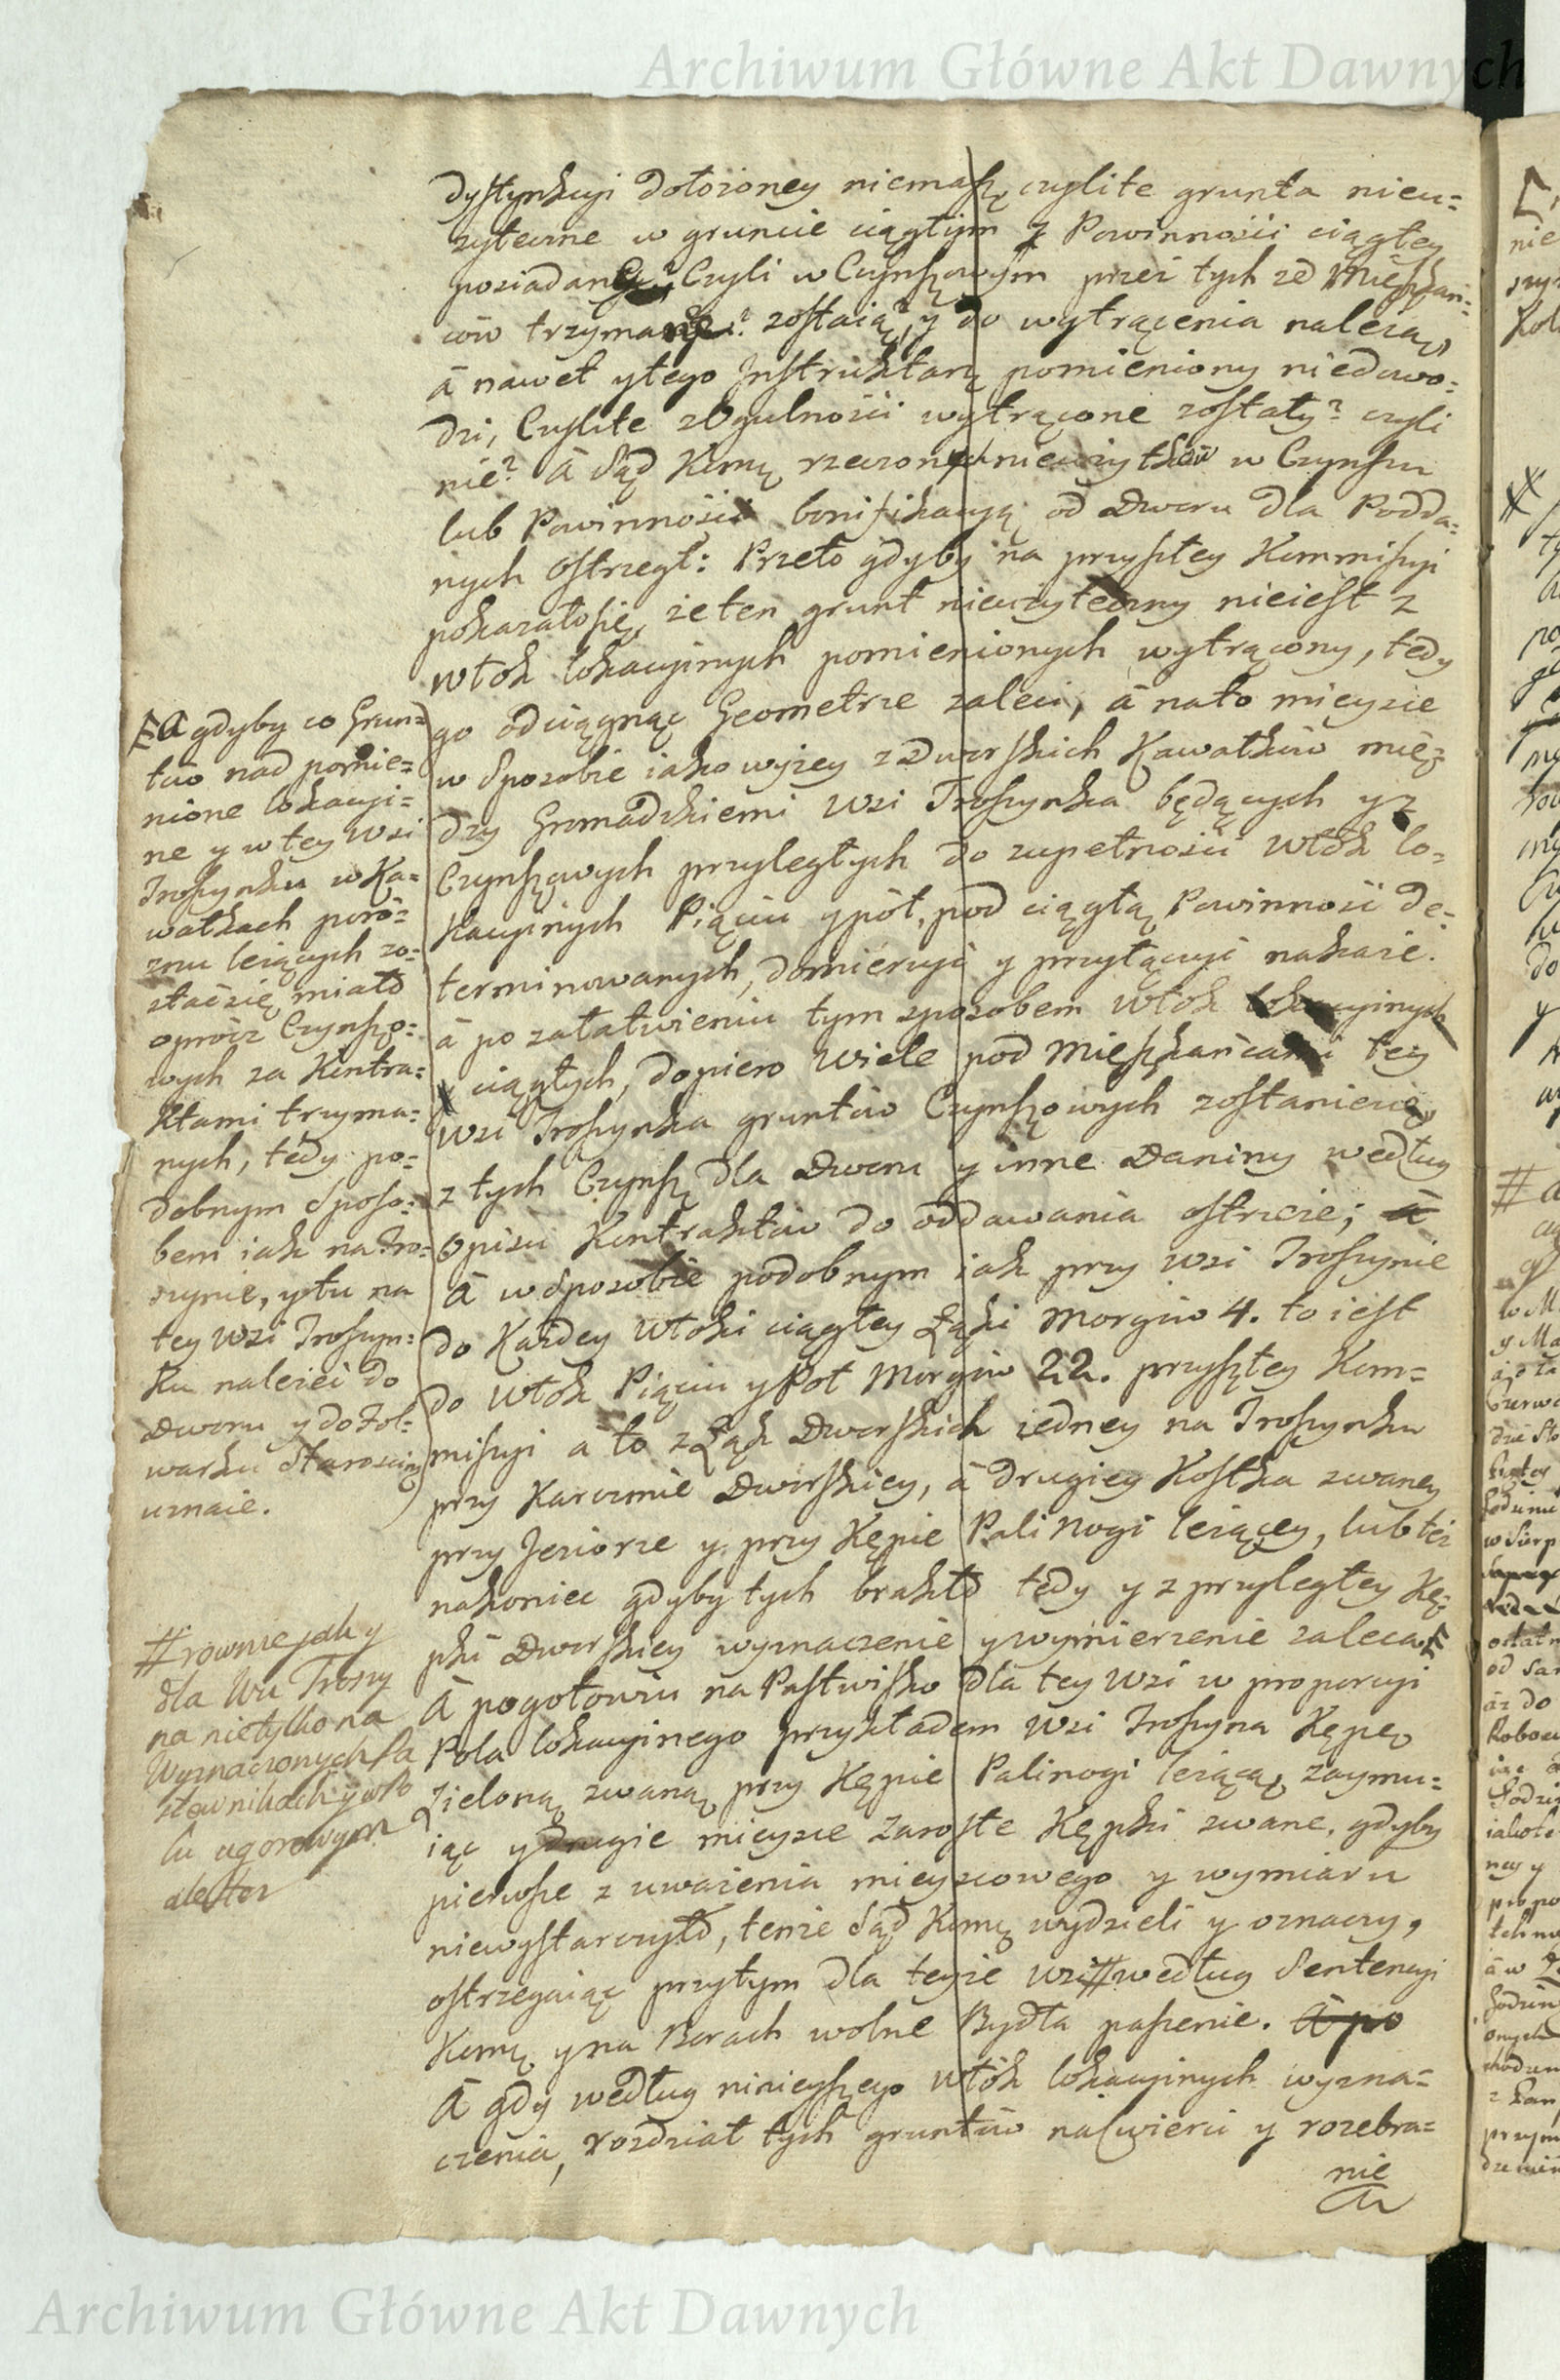 Archiwum Główne Akt Dawnych
dystynkcyi dołożoney niemasz, czylite grunta nieu=
zyteczne w gruncie ciągłym z Powinnosci ciągłey
posiadane, Czyli w Czynszowym przez tych ze Mieszkań=
ców trzymane? zostaią? y do wytrącenia nalezą,
á nawet y tego Instruktarz pomieniony niedowo=
dzi, Czylite z Ogulnosci wytrącone zostały? czyli
nie? á Sąd Kmcy rzeczonych nieuzytków w Czynszu
lub Powinnosci bonifikacyą od Dworu dla Podda=
nych ostrzegł: Przeto gdyby na przyszłey Kommissyi
pokazałosię, że ten grunt nieuzyteczny nieiest z
włók lokacyinych pomienionych wytrącony, tedy
go odciągnąc Geometrze zaleci, á nato mieysce
w Sposobie iako wyzey z Dworskich Kawałków mię=
dzy Gromadzkiemi wsi Troszynka będących y z
Czynszowych przyległych do zupełnosci włók lo=
kacyinych Pięciu y pół, pod ciągłą Powinnosć de=
terminowanych, domierzyć y przyłączyć nakaże.
á po załatwieniu tym sposobem włók lokacyinych
ciągłych, dopiero wiele pod Mieszkańcami tey
wsi Troszynka gruntów Czynszowych zostanie się,
z tych Czynsz dla Dworu y inne Daniny według
Opisu Kontraktów do oddawania ostrzeże; á
á w Sposobie podobnym iak przy wsi Troszynie
do Kazdey włoki ciągłey Łąki Morgów 4. to iest
do włók Pięciu y Poł Morgów 22. przyszłey Kom=
missyi a to z Łąk Dworskich iedney na Troszynku
przy Karczmie Dworskiey, á drugiey Kostka zwaney
przy Jeziorze y przy Kępie Palinogi leżącey, lubtez
nakoniec gdyby tych brakło tedy y z przyległey Kę=
pki Dworskiey wyznaczenie y wymierzenie zaleca
á pogotowiu na Pastwisko dla tey wsi w proporcyi
Pola lokacyinego przykładem wsi Troszyna Kępę
Zieloną zwaną przy Kępie Palinogi leżącą, zaymu=
iąc y drugie mieysce Zarosłe Kępki zwane, gdyby
pierwsze z uważenia mieyscowego y wymiaru
niewystarczyło, tenze Sąd Kmcy wydzieli y oznaczy,
ostrzegaiąc przytym dla teyze wsi # według Sentencyi
Kmcy y na Borach wolne Bydła paszenie. á po
á gdy według ninieyszego włók lokacyinych wyzna=
czenia, rozdział tych gruntów na ćwierci y rozebra=
nie
á gdyby co Grun=
tuw nad pomie=
nione lokacyi=
ne y w tey wsi
Troszynku w Ka=
wałkach poró=
znu leżących zo=
stać się miało
oprócz Czynszo=
wych za Kontra=
ktami trzyma=
nych, tedy po=
dobnym Sposo=
bem iak na Tro=
szynie, y tu na
tey wsi Troszyn=
ku należeć do
Dworu y do Fol=
warku Staroscin
uznaie.
# rownie jak y
dla Wsi Troszy
na nietylko na
Wyznaczonych Pa
stewnikach y w Po
lu ugorowym
ale tez
Archiwum Główne Akt Dawnych